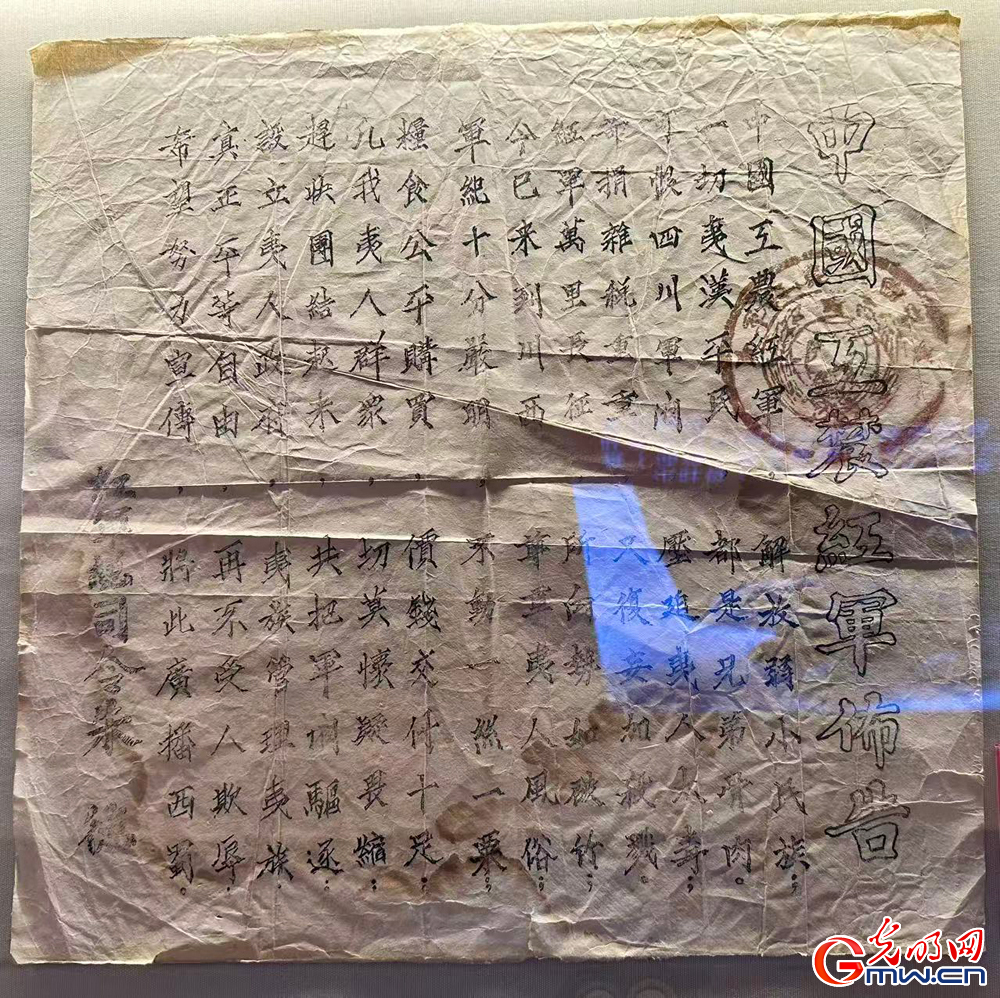 中國工農紅軍佈告
中國工農紅軍，解放弱小民族；
一切夷漢平民，都是兄第骨肉。
可恨四川軍閥，壓迫夷人太毒；
苛捐雜稅重重，又復妄加殺戮。
紅軍萬里長征，所向勢如破竹；
今已來到川西，尊重夷人風俗。
軍紀十分嚴明，不動一絲一粟；
糧食公平購買，價錢交付十足。
凡我夷人群眾，切莫懷疑畏縮；
趕快團結起來，共把軍閥驅逐。
設立夷人政府，夷族管理夷族。
真正平等自由，再不受人欺辱。
希望努力宣傳，將此廣播西蜀。
紅軍總司令朱德
光明网
GMW.cn